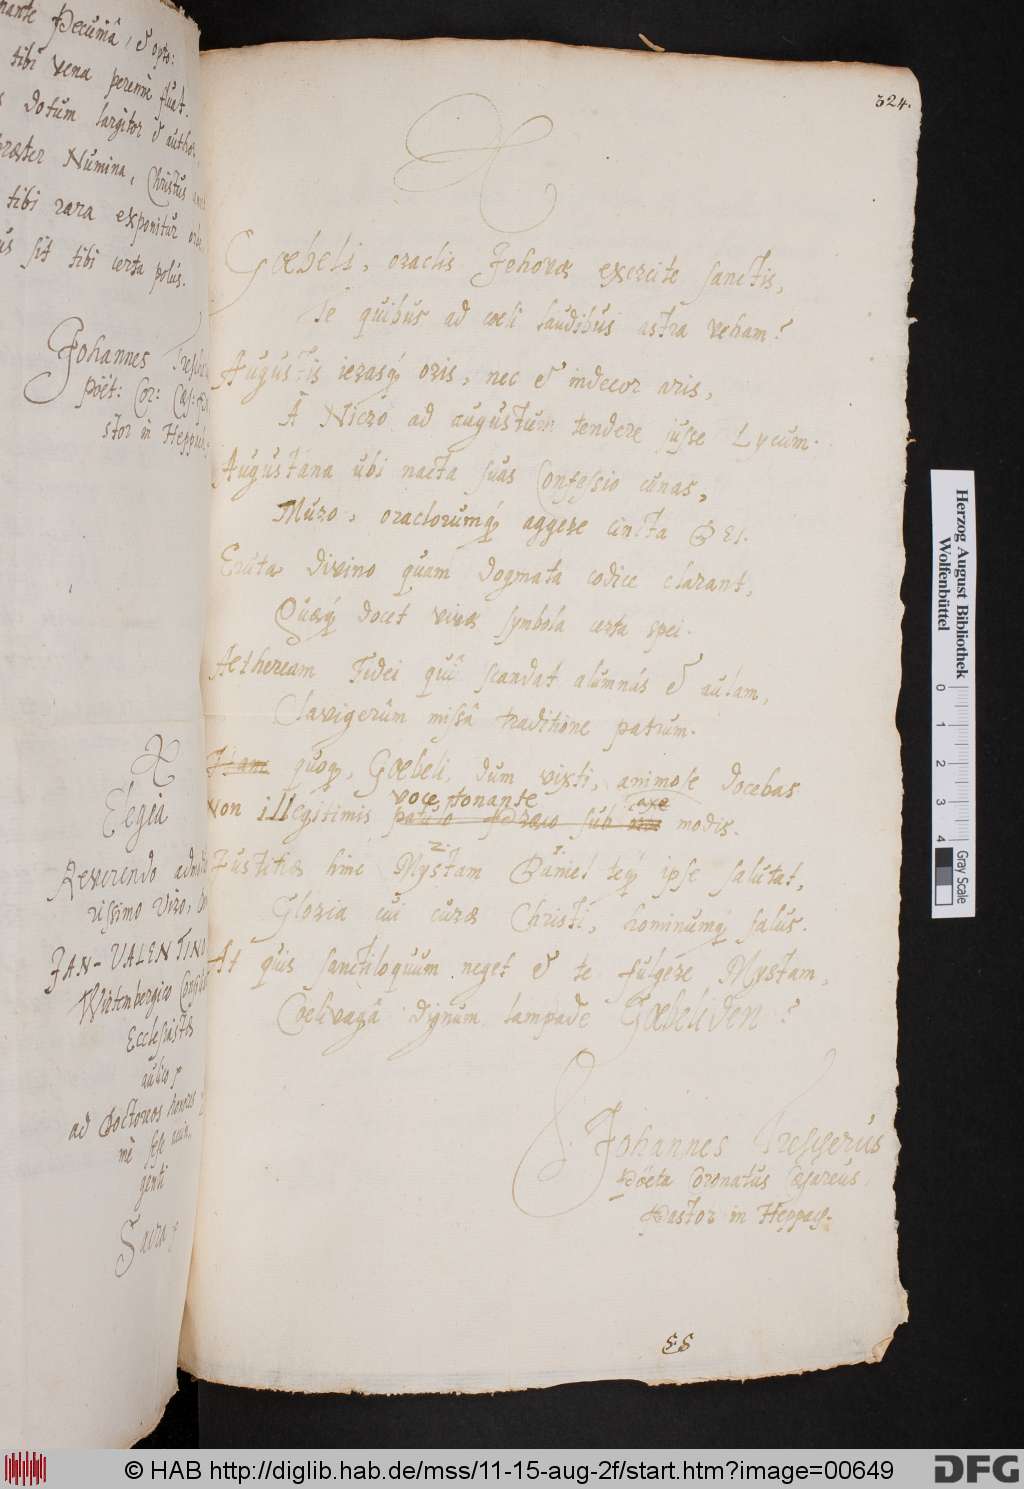 Pecuniâ, & opto:
tibi vena perenne fluat.
dotum largitor & author
præter Numina, Christus
tibi rara exponitur
sit tibi certa polus.
Johannes
Poët: Cor: Cæs:
stor in Heppach
Elegia
Reverendo
rissimo Viro,
JAN-VALENTINO
Wirtembergico
Ecclesiastæ
aulico
ad Doctoros honores
me sese
genti
Sacra
324.
Gœbeli, oraclis Jehovæ exercite sanctis,
Te quibus ad cœli laudibus astra veham?
Augustis ierasq́ oris, nec & indecor aris,
A Nicro ad augustum tendere jusse Lycum.
Augustana ubi nacta suas Confessio cunas,
Muro, oraclorumq́ aggere cincta DEI.
Eruta divino quam dogmata codice clarant,
Quæq́ docet vivæ symbola certa spei.
Aetheream Fidei quâ scandat alumnus & aulam,
Clavigerûm missâ traditione patrum.
quoq, Gœbeli, dum vixti, animose docebas
voce tonante axe
Non illegitimis sub modis.
2. 1.
Justitiæ hinc Mystam Daniel teq́ ipse salutat,
Gloria cui curæ Christi, hominumq́ salus.
At quis sanctiloquum neget & te fulgere Mystam,
Cœlivagâ dignum lampade Gœbeliden?
Johannes
Pöeta Coronatus Cæsareus,
Pastor in Heppach.
Herzog August Bibliothek
Wolfenbüttel
0 1 2 3 4
Gray Scale
© HAB http://diglib.hab.de/mss/11-15-aug-2f/start.htm?image=00649
DFG